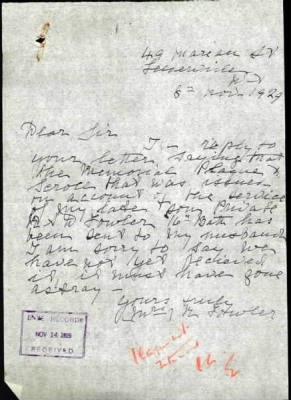 49 Marion St
Leichhardt
6th Nov. 1929
Dear Sir
In reply to
your letter, saying that
the Memorial Plaque &
Scroll that was issued
on account of the service
of my late Son, Private
R. D. Fowler 6 Batt has
been sent to my husband
I am sorry to say we
have not yet received
it, it must have gone
astray —
Yours truly
(Mrs) M Fowler
BASE RECORDS
NOV 14 1929
RECEIVED